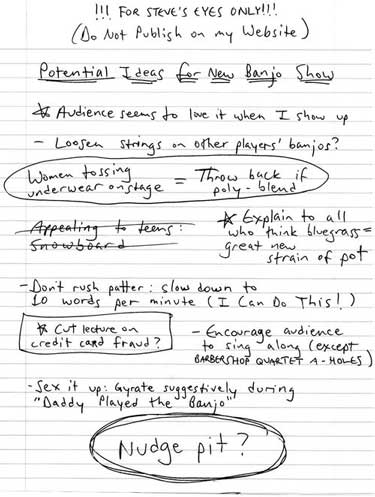 !!! FOR STEVE'S EYES ONLY!!!
(Do Not Publish on my Website)
Potential Ideas for New Banjo Show
* Audience seems to love it when I show up
- Loosen strings on other players' banjos?
Women tossing underwear onstage = Throw back if poly-blend
Appealing to teens:
Snowboard
* Explain to all
who think bluegrass =
great new
strain of pot
- Don't rush patter: slow down to
10 words per minute (I Can Do This!)
* Cut lecture on
credit card fraud?
- Encourage audience
to sing along (except
BARBERSHOP QUARTET A-HOLES)
- Sex it up: Gyrate suggestively during
"Daddy Played the Banjo"
Nudge pit?